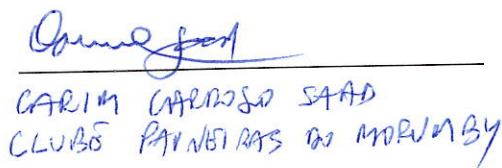 CARIM CARDOSO SAAD
CLUBE PAINEIRAS DO MORUMBY